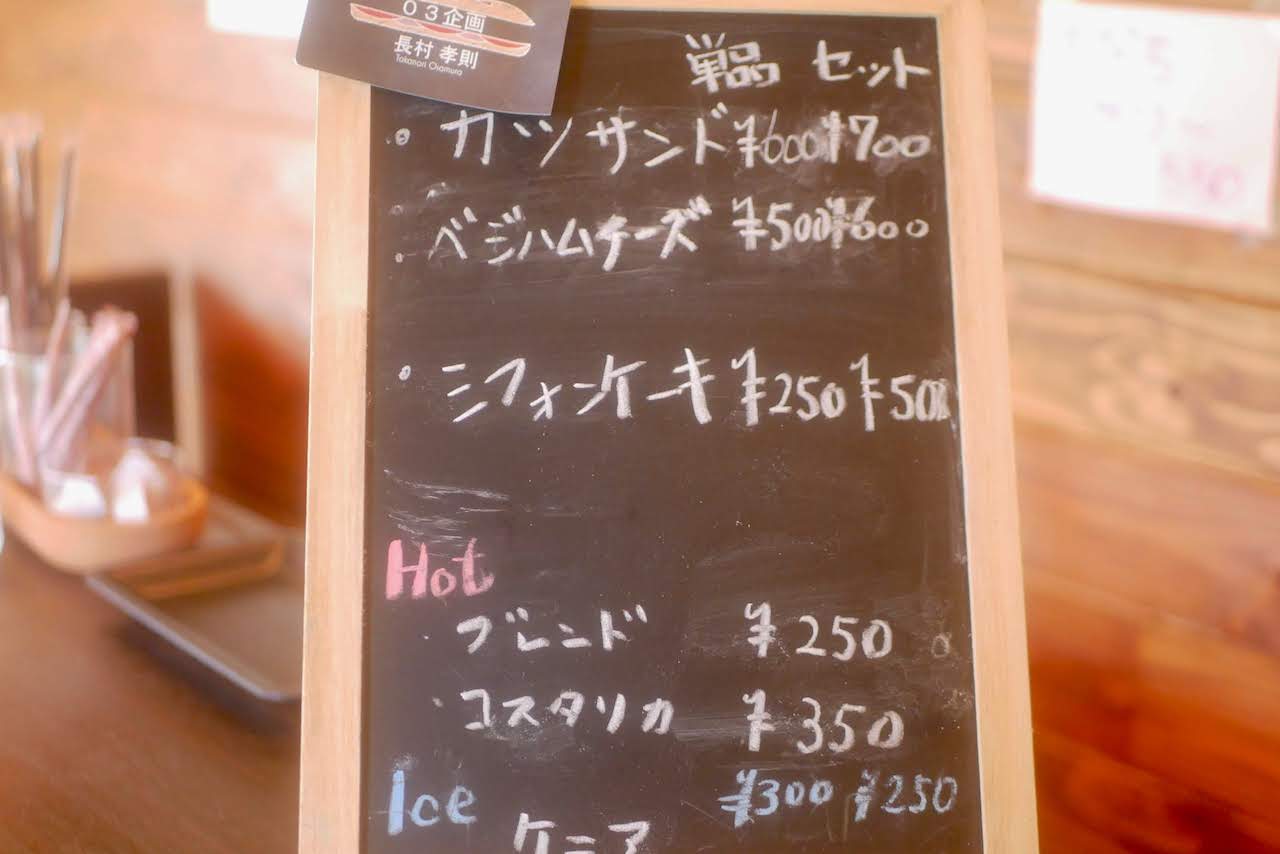 03企画
長村 孝則
Takanori Osamura
単品 セット
・カツサンド ¥600 ¥700
・ベジハムチーズ ¥500 ¥600
・シフォンケーキ ¥250 ¥500
Hot
・ブレンド ¥250
・コスタリカ ¥350
Ice ¥300 ¥250
ケニア